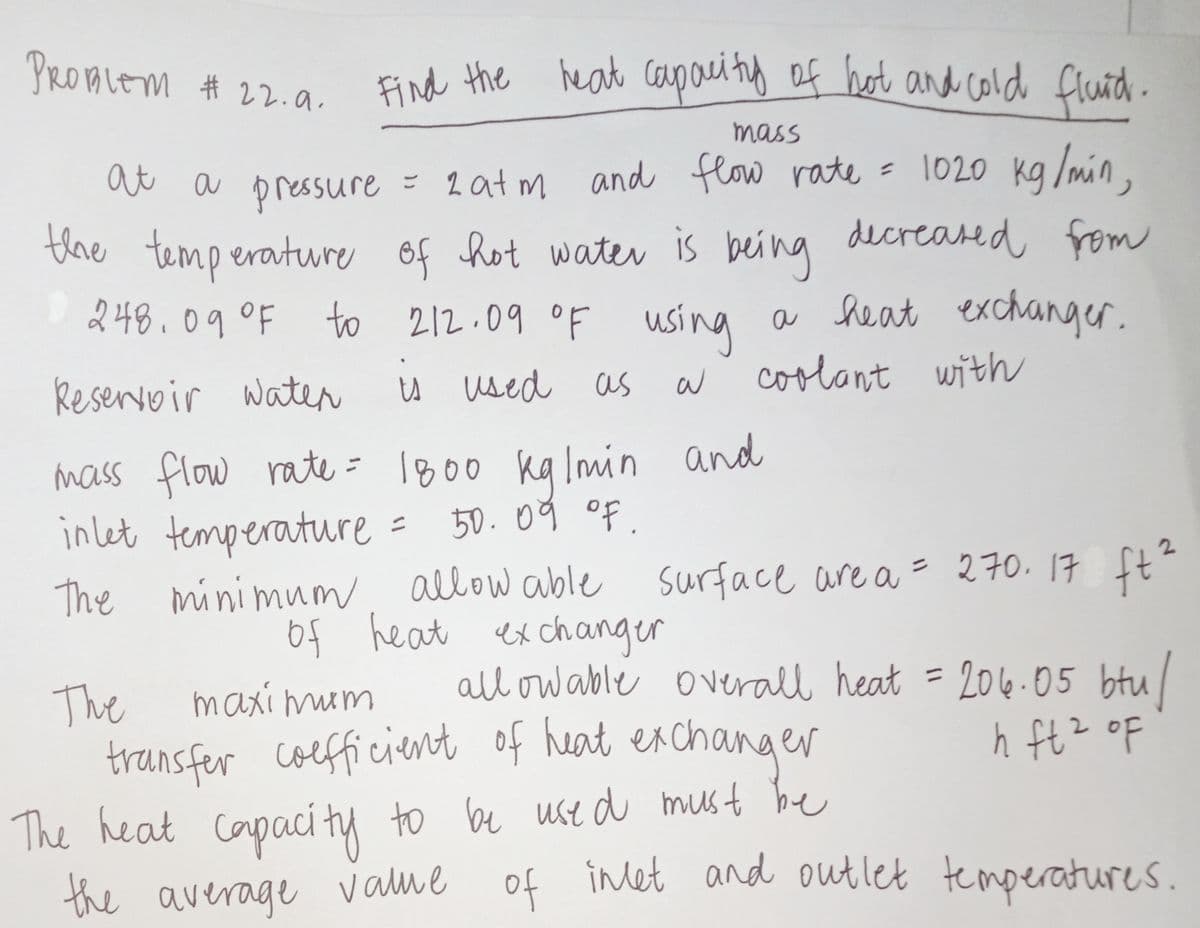 PROBLEM # 22.a. Find the heat capacity of hot and cold fluid.
mass
at a pressure = 2 atm and flow rate = 1020 kg/min,
the temperature of hot water is being decreased from
248.09 °F to 212.09 °F using a heat exchanger.
Reservoir water is used as a coolant with
mass flow rate = 1800 kg/min and
inlet temperature = 50.09 °F.
The minimum allowable surface area = 270.17 ft²
of heat exchanger
The maximum allowable overall heat = 206.05 btu/
transfer coefficient of heat exchanger h ft² °F
The heat capacity to be used must be
the average value of inlet and outlet temperatures.